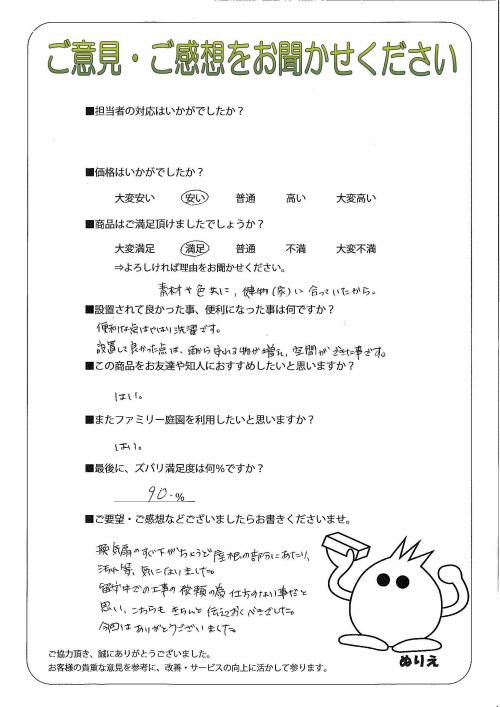 ご意見・ご感想をお聞かせください
■担当者の対応はいかがでしたか？
■価格はいかがでしたか？
大変安い 安い 普通 高い 大変高い
■商品はご満足頂けましたでしょうか？
大変満足 満足 普通 不満 大変不満
⇒よろしければ理由をお聞かせください。
素材や色共に、建物(家)に合っていたから。
■設置されて良かった事、便利になった事は何ですか？
便利な点はやはり洗濯です。
設置して良かった点は、雨から守れる物が増え、空間ができた事です。
■この商品をお友達や知人におすすめしたいと思いますか？
はい。
■またファミリー庭園を利用したいと思いますか？
はい。
■最後に、ズバリ満足度は何％ですか？
90 %
■ご要望・ご感想などございましたらお書きくださいませ。
換気扇のすぐ下がちょうど屋根の部分にあたり、
汚れ等、気になりました。
留守中での工事の依頼の為 仕方のない事だと
思い、こちらも きちんと伝えておくべきでした。
今回は ありがとうございました。
ぬりえ
ご協力頂き、誠にありがとうございました。
お客様の貴重な意見を参考に、改善・サービスの向上に活かして参ります。